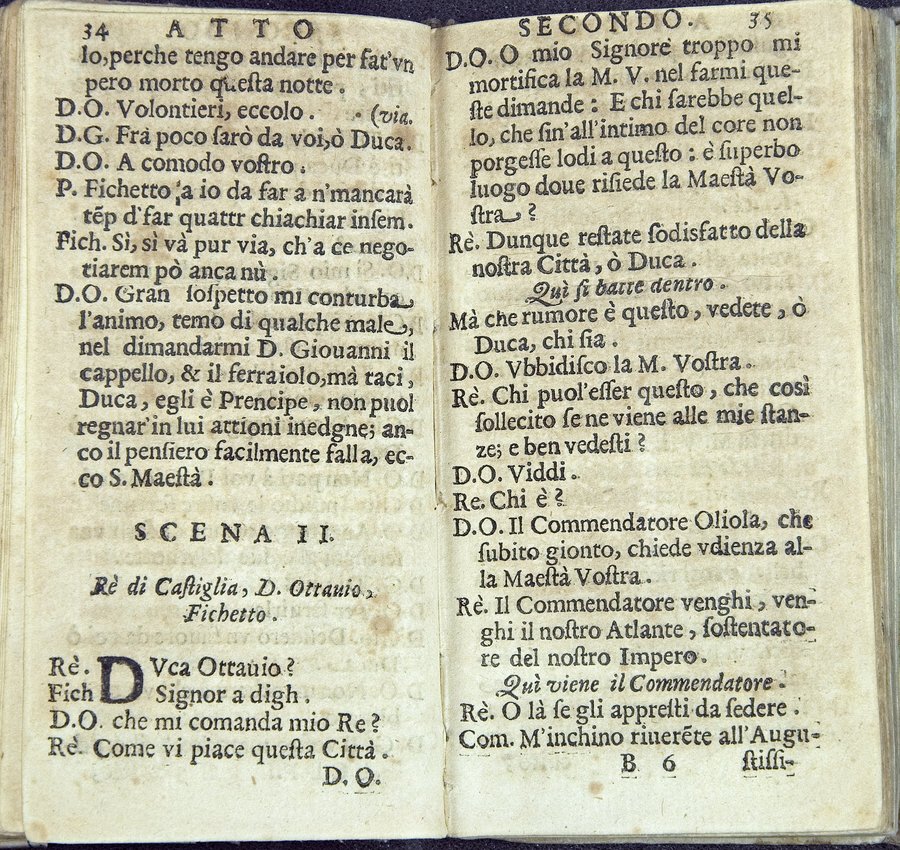 34 ATTO
lo,perche tengo andare per fat'vn
pero morto questa notte.
D.O. Volontieri, eccolo. (via.
D.G. Frà poco sarò da voi,ò Duca.
D.O. A comodo vostro.
P. Fichetto a io da far a n'mancarà
tẽp d'far quattr chiachiar insem.
Fich. Sì, sì và pur via, ch'a ce nego-
tiarem pò anca nù.
D.O. Gran sospetto mi conturba
l'animo, temo di qualche male,
nel dimandarmi D. Giouanni il
cappello, & il ferraiolo,mà taci,
Duca, egli è Prencipe, non puol
regnar in lui attioni inedgne; an-
co il pensiero facilmente falla, ec-
co S. Maestà.
SCENA II.
Rè di Castiglia, D. Ottauio,
Fichetto.
Rè. DVca Ottauio?
Fich Signor a digh.
D.O. che mi comanda mio Re?
Rè. Come vi piace questa Città.
D. O.
SECONDO. 35
D.O. O mio Signore troppo mi
mortifica la M. V. nel farmi que-
ste dimande: E chi sarebbe quel-
lo, che sin'all'intimo del core non
porgesse lodi a questo: è superbo
luogo doue risiede la Maestà Vo-
stra?
Rè. Dunque restate sodisfatto della
nostra Città, ò Duca.
Quì si batte dentro.
Mà che rumore è questo, vedete, ò
Duca, chi sia.
D.O. Vbbidisco la M. Vostra.
Rè. Chi puol'esser questo, che così
sollecito se ne viene alle mie stan-
ze; e ben vedesti?
D.O. Viddi.
Re. Chi è?
D.O. Il Commendatore Oliola, che
subito gionto, chiede vdienza al-
la Maestà Vostra.
Rè. Il Commendatore venghi, ven-
ghi il nostro Atlante, sostentato-
re del nostro Impero.
Quì viene il Commendatore.
Rè. O là se gli appresti da sedere.
Com. M'inchino riuerẽte all'Augu-
B 6 stissi-